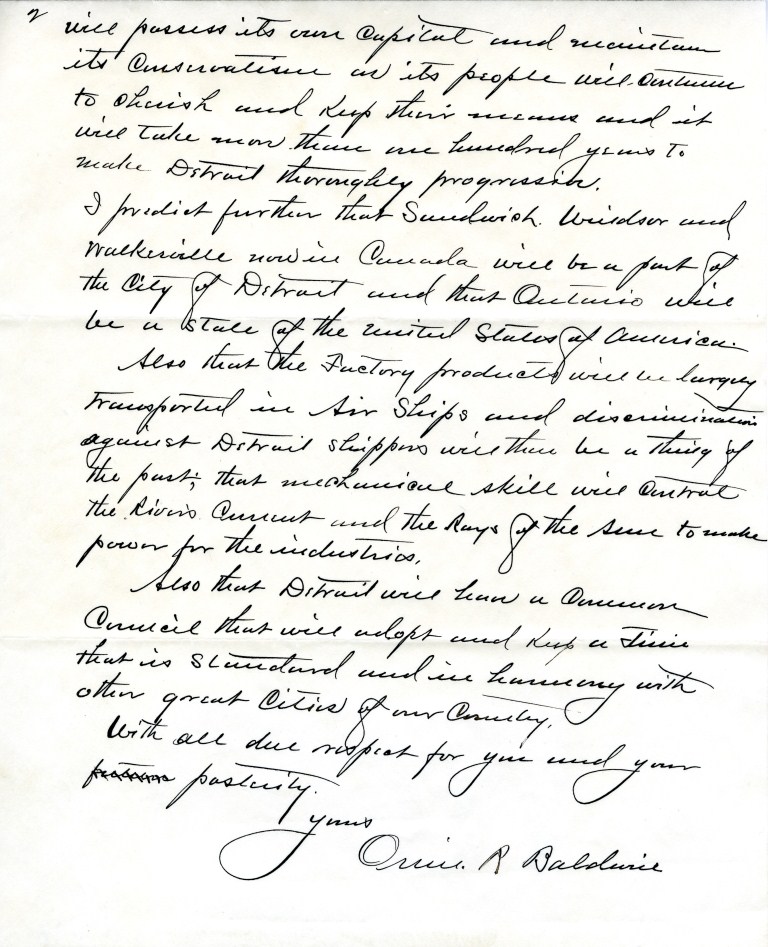 2
will possess its own Capital and maintain
its Conservatism as its people will continue
to cherish and keep their means and it
will take more than one hundred years to
make Detroit thoroughly progressive.
I predict further that Sandwich. Windsor and
Walkerville now in Canada will be a part of
the City of Detroit and that Ontario will
be a State of the United States of America.
Also that the Factory products will be largely
transported in Air Ships and discrimination
against Detroit shippers will then be a thing of
the past; that mechanical skill will Control
the Rivers Current and the Rays of the Sun to make
power for the industries.
Also that Detroit will have a Common
Council that will adopt and keep a Time
that is Standard and in harmony with
other great Cities of our Country.
With all due respect for you and your
posterity.
yours
R Baldwin